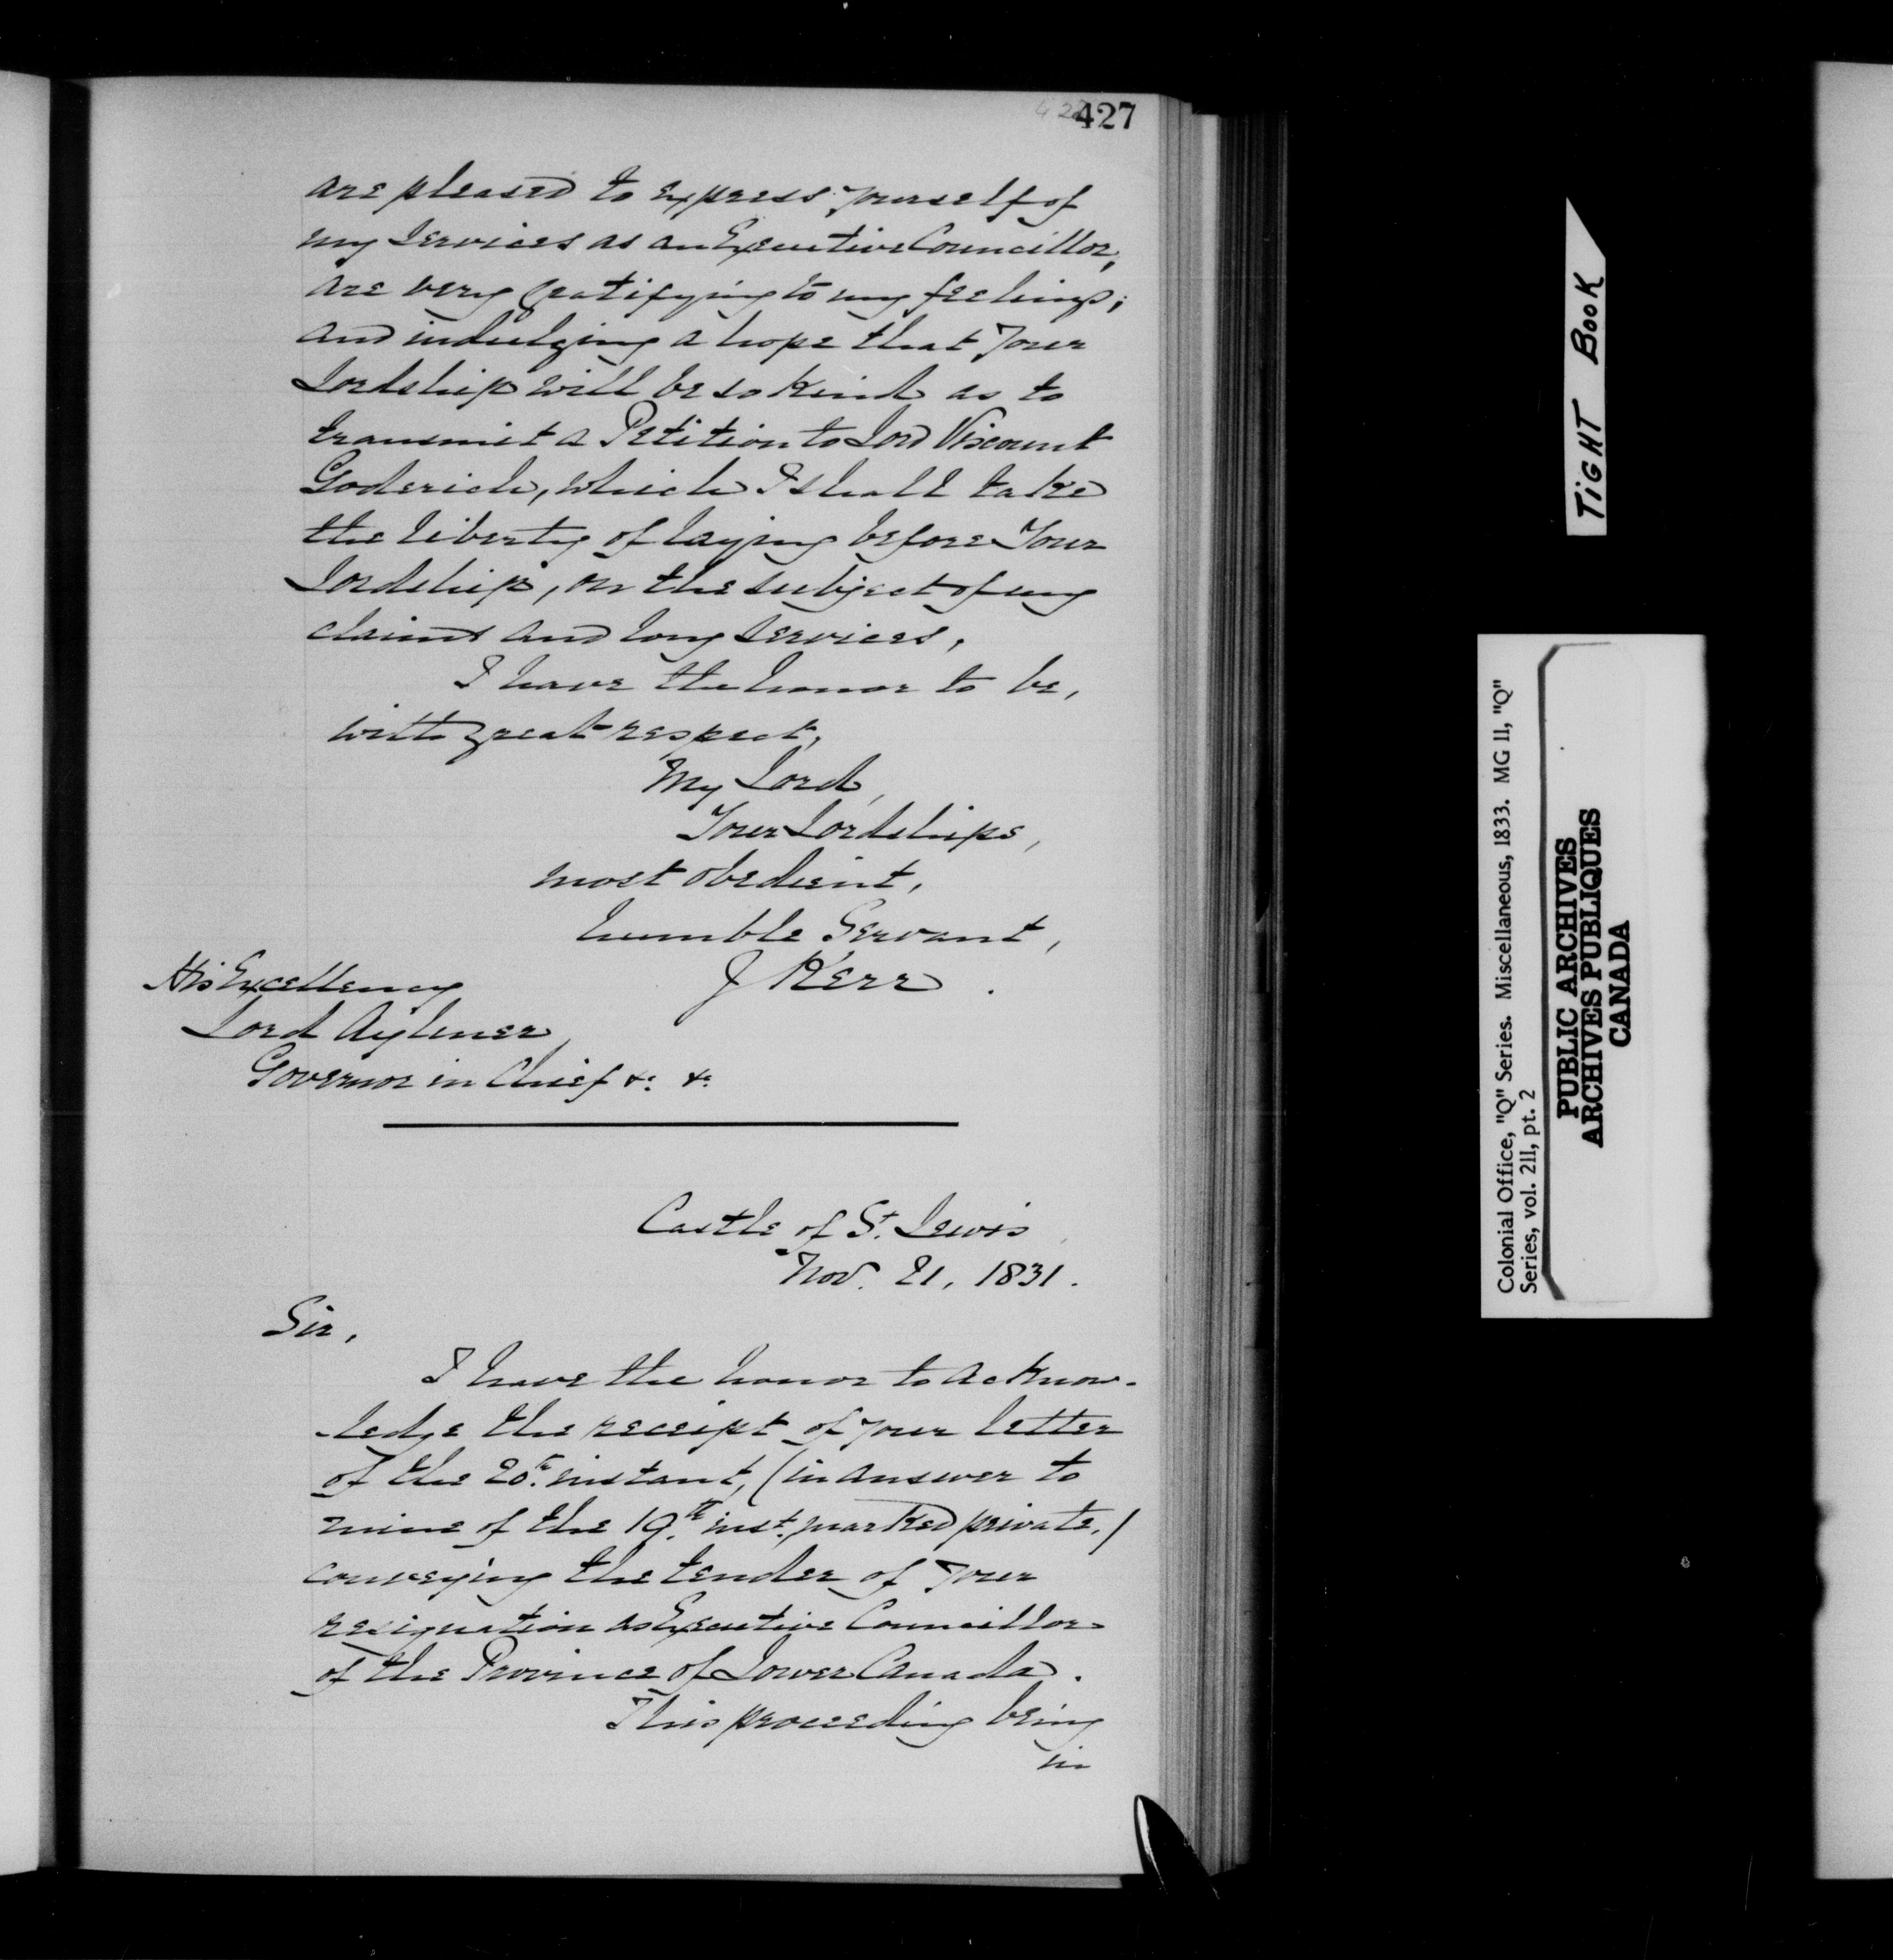 427
are pleased to express yourself of
my Services as an Executive Councillor,
are very gratifying to my feelings;
and indulging a hope that Your
Lordship will be so kind as to
transmit a Petition to Lord Viscount
Goderich, which I shall take
the liberty of laying before Your
Lordship, on the subject of my
claims and long services,
I have the honor to be,
with great respect,
My Lord,
Your Lordships,
most obedient,
humble Servant,
J Kerr.
His Excellency
Lord Aylmer,
Governor in Chief &c. &c.
Castle of St. Lewis
Nov. 21, 1831.
Sir,
I have the honor to acknow-
-ledge the receipt of your letter
of the 20th. instant, (in answer to
mine of the 19th. inst. marked private,)
conveying the tender of your
resignation as Executive Councillor
of the Province of Lower Canada.
This proceeding being
in
TIGHT BOOK
Colonial Office, "Q" Series. Miscellaneous, 1833. MG 11, "Q"
Series, vol. 211, pt. 2
PUBLIC ARCHIVES
ARCHIVES PUBLIQUES
CANADA